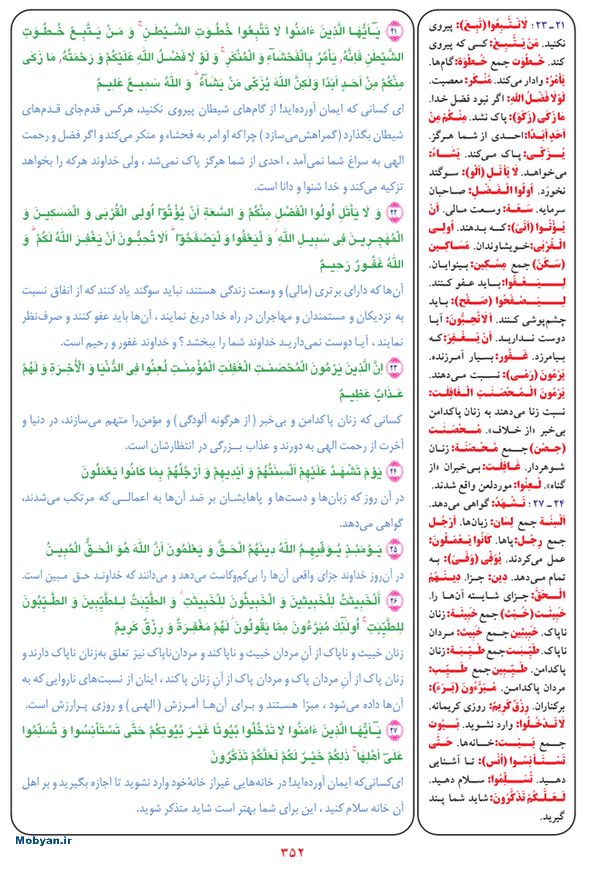 ۲۱ ـ ۲۳: لاتَتَّبِعُوا (تَبِعَ): پیروی
نکنید. مَنْ یَتَّبِعْ: کسی که پیروی
کند. خُطُوَت جمع خُطْوَة: گام‌ها.
یَأمُرُ: وادار می‌کند. مُنْکَر: معصیت.
لَوْلا فَضْلُ اللهِ: اگر نبود فضل خدا.
ما زَکَی (زَکَوَ): پاک نشد. مِنْکُمْ مِنْ
اَحَدٍ اَبَدًا: احدی از شما هرگز.
یُزَکّی: پاک می‌کند. یَشاءُ:
می‌خواهد. لا یَأتَلِ (اَلَوَ): سوگند
نخورَد. اُولُوا الْفَضْلِ: صاحبان
سرمایه. سَعَة: وسعت مالی. اَنْ
یُؤْتُوا (اَتَیَ): که بدهند. اُولِی
الْقُرْبَی: خویشاوندان. مَساکِین
(سَکَنَ) جمع مِسْکِین: بینوایان.
لِیَعْفُوا: باید عفو کنند.
لِیَصْفَحُوا (صَفَحَ): باید
چشم‌پوشی کنند. اَلا تُحِبُّونَ: آیا
دوست ندارید. اَنْ یَغْفِرَ: که
بیامرزد. غَفُور: بسیار آمرزنده.
یَرْمُونَ (رَمَیَ): نسبت می‌دهند.
یَرْمُونَ الْمُحْصَنتِ الْغافِلتِ:
نسبت زنا می‌دهند به زنان پاکدامن
بی‌خبر «از خلاف». مُحْصَنَت
(حَصُنَ) جمع مُحْصَنَة: زنان
شوهردار. غافِلت: بی‌خبران «از
گناه». لُعِنُوا: موردلعن واقع شدند.
۲۴ ـ ۲۷: تَشْهَدُ: گواهی می‌دهد.
اَلْسِنَة جمع لِسَان: زبان‌ها. اَرْجُل
جمع رِجْل: پاها. کَانُوا یَعْمَلُونَ:
عمل می‌کردند. یُوَفّی (وَفَیَ): به
تمام می‌دهد. دِین: جزا. دِینَهُمُ
الْحَقَّ: جزای شایسته آن‌ها را.
خَبِیثت (خَبُثَ) جمع خَبِیثَة: زنان
ناپاک. خَبِیثِین جمع خَبِیث: مردان
ناپاک. طَیِّبت جمع طَیِّبَة: زنان
پاکدامن. طَیِّبِین جمع طَیِّب:
مردان پاکدامن. مُبَرَّءُونَ (بَرَءَ):
برکناران. رِزْقٌ کَرِیمٌ: روزی کریمانه.
لا تَدْخُلُوا: وارد نشوید. بُیُوت
جمع بَیْت: خانه‌ها. حَتَّی
تَسْتَأنِسُوا (اَنَسَ): تا آشنایی
دهید. تُسَلِّمُوا: سلام دهید.
لَعَلَّکُمْ تَذَکَّرُونَ: شاید شما پند
گیرید.
۲۱ یَـٓاَیُّهَا الَّذینَ ءَامَنُوا لَا تَتَّبِعُوا خُطُوتِ الشَّیْطنِ ۚ وَ مَنْ یَتَّبِعْ خُطُوتِ
الشَّیْطنِ فَاِنَّهُ یَأْمُرُ بِالْفَحْشَاءِ وَ الْمُنْکَرِ ۚ وَ لَوْ لَا فَضْلُ اللهِ عَلَیْکُمْ وَ رَحْمَتُهُ مَا زَکٰی
مِنْکُمْ مِنْ اَحَدٍ اَبَدًا وَلٰکِنَّ اللهَ یُزَکّی مَنْ یَشَاءُ ۗ وَ اللهُ سَمیعٌ عَلیمٌ
ای کسانی که ایمان آورده‌اید! از گام‌های شیطان پیروی نکنید، هرکس قدم‌جای قدم‌های
شیطان بگذارد (گمراهش‌می‌سازد) چراکه او امر به فحشاء و منکر می‌کند و اگر فضل و رحمت
الهی به سراغ شما نمی‌آمد، احدی از شما هرگز پاک نمی‌شد، ولی خداوند هرکه را بخواهد
تزکیه می‌کند و خدا شنوا و دانا است.
۲۲ وَ لَا یَأْتَلِ اُولُوا الْفَضْلِ مِنْکُمْ وَ السَّعَةِ اَنْ یُؤْتُوا اُولِی الْقُرْبٰی وَ الْمَسٰکینَ وَ
الْمُهٰجِرینَ فی سَبیلِ اللهِ ۖ وَ لْیَعْفُوا وَ لْیَصْفَحُوا ۗ اَلَا تُحِبُّونَ اَنْ یَغْفِرَ اللهُ لَکُمْ ۗ وَ
اللهُ غَفُورٌ رَحیمٌ
آن‌ها که دارای برتری (مالی) و وسعت زندگی هستند، نباید سوگند یاد کنند که از انفاق نسبت
به نزدیکان و مستمندان و مهاجران در راه خدا دریغ نمایند، آن‌ها باید عفو کنند و صرف‌نظر
نمایند، آیا دوست نمی‌دارید خداوند شما را ببخشد؟ و خداوند غفور و رحیم است.
۲۳ اِنَّ الَّذینَ یَرْمُونَ الْمُحْصَنٰتِ الْغٰفِلٰتِ الْمُؤْمِنٰتِ لُعِنُوا فِی الدُّنْیَا وَ الْاٰخِرَةِ وَ لَهُمْ
عَذَابٌ عَظیمٌ
کسانی که زنان پاکدامن و بی‌خبر (از هرگونه آلودگی) و مؤمن‌را متهم می‌سازند، در دنیا و
آخرت از رحمت الهی به دورند و عذاب بزرگی در انتظارشان است.
۲۴ یَوْمَ تَشْهَدُ عَلَیْهِمْ اَلْسِنَتُهُمْ وَ اَیْدیهِمْ وَ اَرْجُلُهُمْ بِمَا کَانُوا یَعْمَلُونَ
در آن روز که زبان‌ها و دست‌ها و پاهایشان بر ضد آن‌ها به اعمالی که مرتکب می‌شدند،
گواهی می‌دهد.
۲۵ یَوْمَئِذٍ یُوَفّیهِمُ اللهُ دینَهُمُ الْحَقَّ وَ یَعْلَمُونَ اَنَّ اللهَ هُوَ الْحَقُّ الْمُبینُ
در آن‌روز خداوند جزای واقعی آن‌ها را بی‌کم‌وکاست می‌دهد و می‌دانند که خداوند حق مبین است.
۲۶ اَلْخَبیثٰتُ لِلْخَبیثینَ وَ الْخَبیثُونَ لِلْخَبیثٰتِ ۖ وَ الطَّیِّبٰتُ لِلطَّیِّبینَ وَ الطَّیِّبُونَ
لِلطَّیِّبٰتِ ۚ اُولٰٓئِکَ مُبَرَّءُونَ مِمَّا یَقُولُونَ ۖ لَهُمْ مَغْفِرَةٌ وَ رِزْقٌ کَریمٌ
زنان خبیث و ناپاک از آنِ مردان خبیث و ناپاکند و مردان‌ناپاک نیز تعلق به‌زنان ناپاک دارند و
زنان پاک از آنِ مردان پاک و مردان پاک از آنِ زنان پاکند، اینان از نسبت‌های ناروایی که به
آن‌ها داده می‌شود، مبرّا هستند و برای آن‌ها آمرزش (الهی) و روزی پرارزش است.
۲۷ یَـٓاَیُّهَا الَّذینَ ءَامَنُوا لَا تَدْخُلُوا بُیُوتًا غَیْرَ بُیُوتِکُمْ حَتّٰی تَسْتَأْنِسُوا وَ تُسَلِّمُوا
عَلٰٓی اَهْلِهَا ۚ ذٰلِکُمْ خَیْرٌ لَکُمْ لَعَلَّکُمْ تَذَکَّرُونَ
ای‌کسانی‌که ایمان آورده‌اید! در خانه‌هایی غیراز خانهٔ‌خود وارد نشوید تا اجازه بگیرید و بر اهل
آن خانه سلام کنید، این برای شما بهتر است شاید متذکر شوید.
Mobyan.ir
۳۵۲